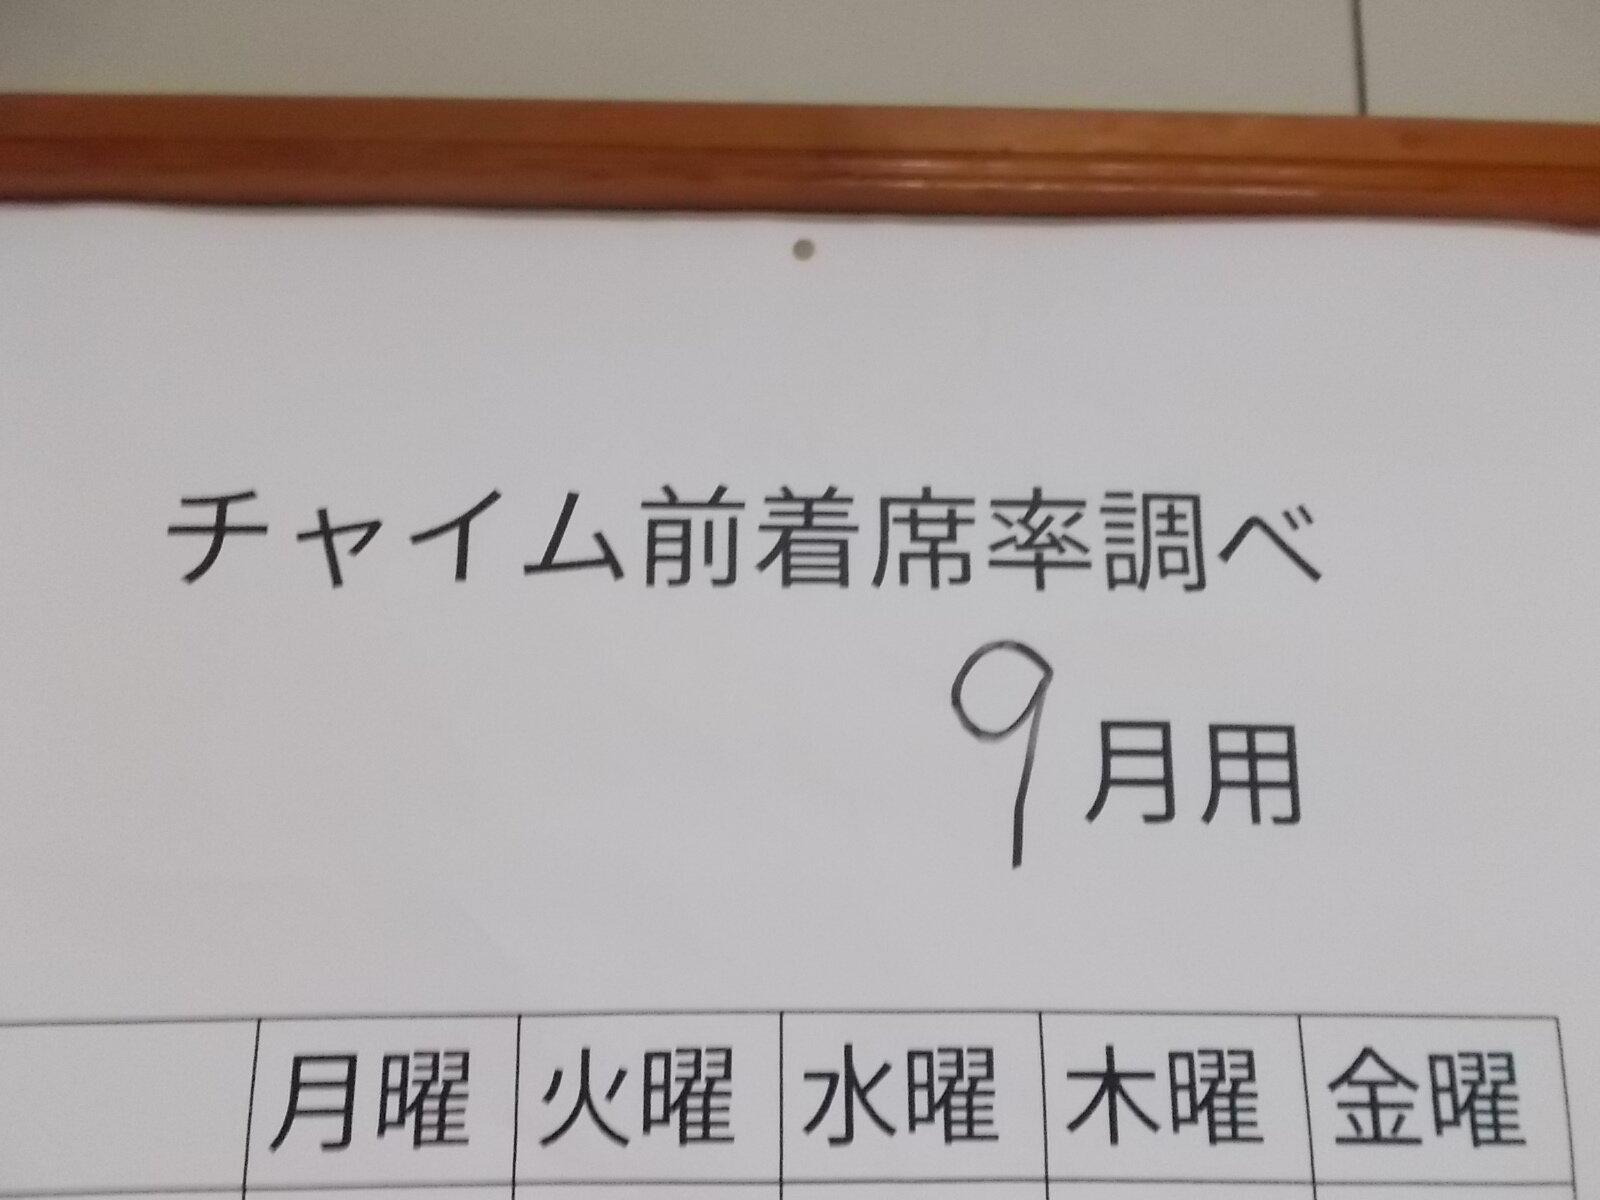 チャイム前着席率調べ
9月用
月曜 火曜 水曜 木曜 金曜